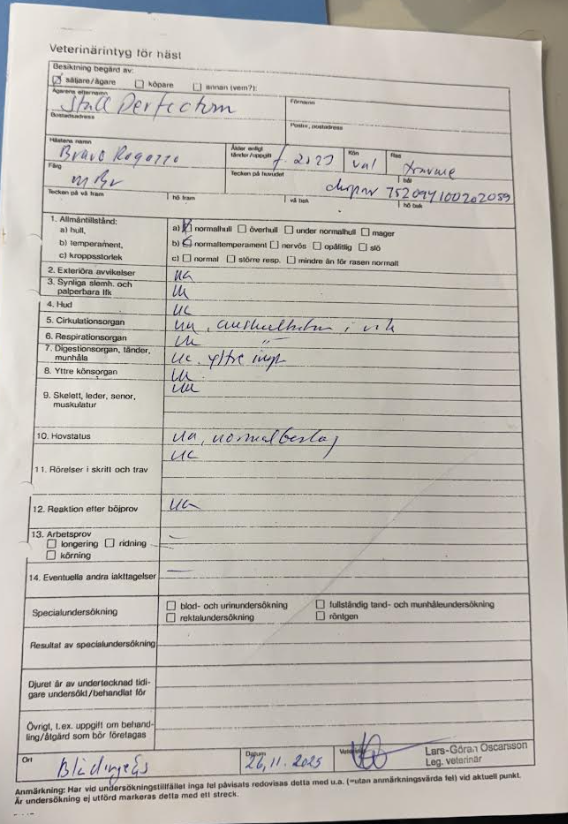 Veterinärintyg för häst
Besiktning begärd av:
säljare/ägare köpare annan (vem?):
Ägarens efternamn Förnamn
Stall Perfectum
Bostadsadress Postnr, postadress
Hästens namn Ålder enligt tänder/uppgift Kön Ras
f. 2023 val travare
Färg Tecken på huvudet
m Br chipnr 752094100202059
Tecken på vä fram hö fram vä bak hö bak
1. Allmäntillstånd:
a) hull, a) normalhull överhull under normalhull mager
b) temperament, b) normaltemperament nervös opålitlig slö
c) kroppsstorlek c) normal större resp. mindre än för rasen normalt
2. Exteriöra avvikelser ua
3. Synliga slemh. och palperbara lfk ua
4. Hud ua
5. Cirkulationsorgan ua, auskultation i vila
6. Respirationsorgan ua -"-
7. Digestionsorgan, tänder, munhåla ua, yttre insp
8. Yttre könsorgan ua
9. Skelett, leder, senor, muskulatur ua
10. Hovstatus ua, normalbeslag
11. Rörelser i skritt och trav ua
12. Reaktion efter böjprov ua
13. Arbetsprov –
longering ridning
körning
14. Eventuella andra iakttagelser –
Specialundersökning blod- och urinundersökning fullständig tand- och munhåleundersökning
rektalundersökning röntgen
Resultat av specialundersökning
Djuret är av undertecknad tidi-
gare undersökt/behandlat för
Övrigt, t.ex. uppgift om behand-
ling/åtgärd som bör företagas
Ort Datum Veterinär
Blädingeås 26,11. 2025 Lars-Göran Oscarsson
Leg. veterinär
Anmärkning: Har vid undersökningstillfället inga fel påvisats redovisas detta med u.a. (=utan anmärkningsvärda fel) vid aktuell punkt.
Är undersökning ej utförd markeras detta med ett streck.